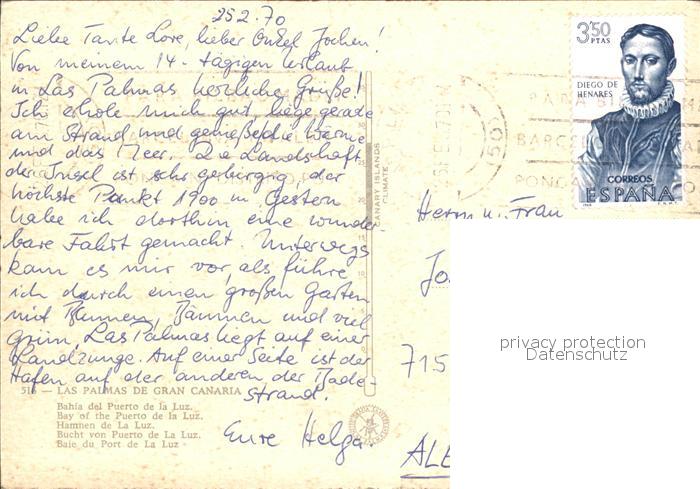 25.2.70
Liebe Tante Lore, lieber Onkel Jochen!
Von meinem 14-tägigen Urlaub
in Las Palmas herzliche Grüße!
Ich erhole mich gut, liege gerade
am Strand und genieße die Wärme
und das Meer. Die Landschaft
der Insel ist sehr gebirgig, der
höchste Punkt 1900 m. Gestern
habe ich dorthin eine wunder
bare Fahrt gemacht. Unterwegs
kam es mir vor, als führe
ich durch einen großen Garten
mit Blumen, Bäumen und viel
grün. Las Palmas liegt auf einer
Landzunge. Auf einer Seite ist der
Hafen auf der anderen der Bade-
strand.
Eure Helga.
516 — LAS PALMAS DE GRAN CANARIA
Bahía del Puerto de la Luz.
Bay of the Puerto de la Luz.
Hamnen de La Luz.
Bucht von Puerto de La Luz.
Baie du Port de La Luz
CANARY ISLANDS
CLIMATE
3'50
PTAS
DIEGO DE
HENARES
CORREOS
ESPAÑA
BARCE
PONGA
Herrn u. Frau
Jo
715
ALE
privacy protection
Datenschutz